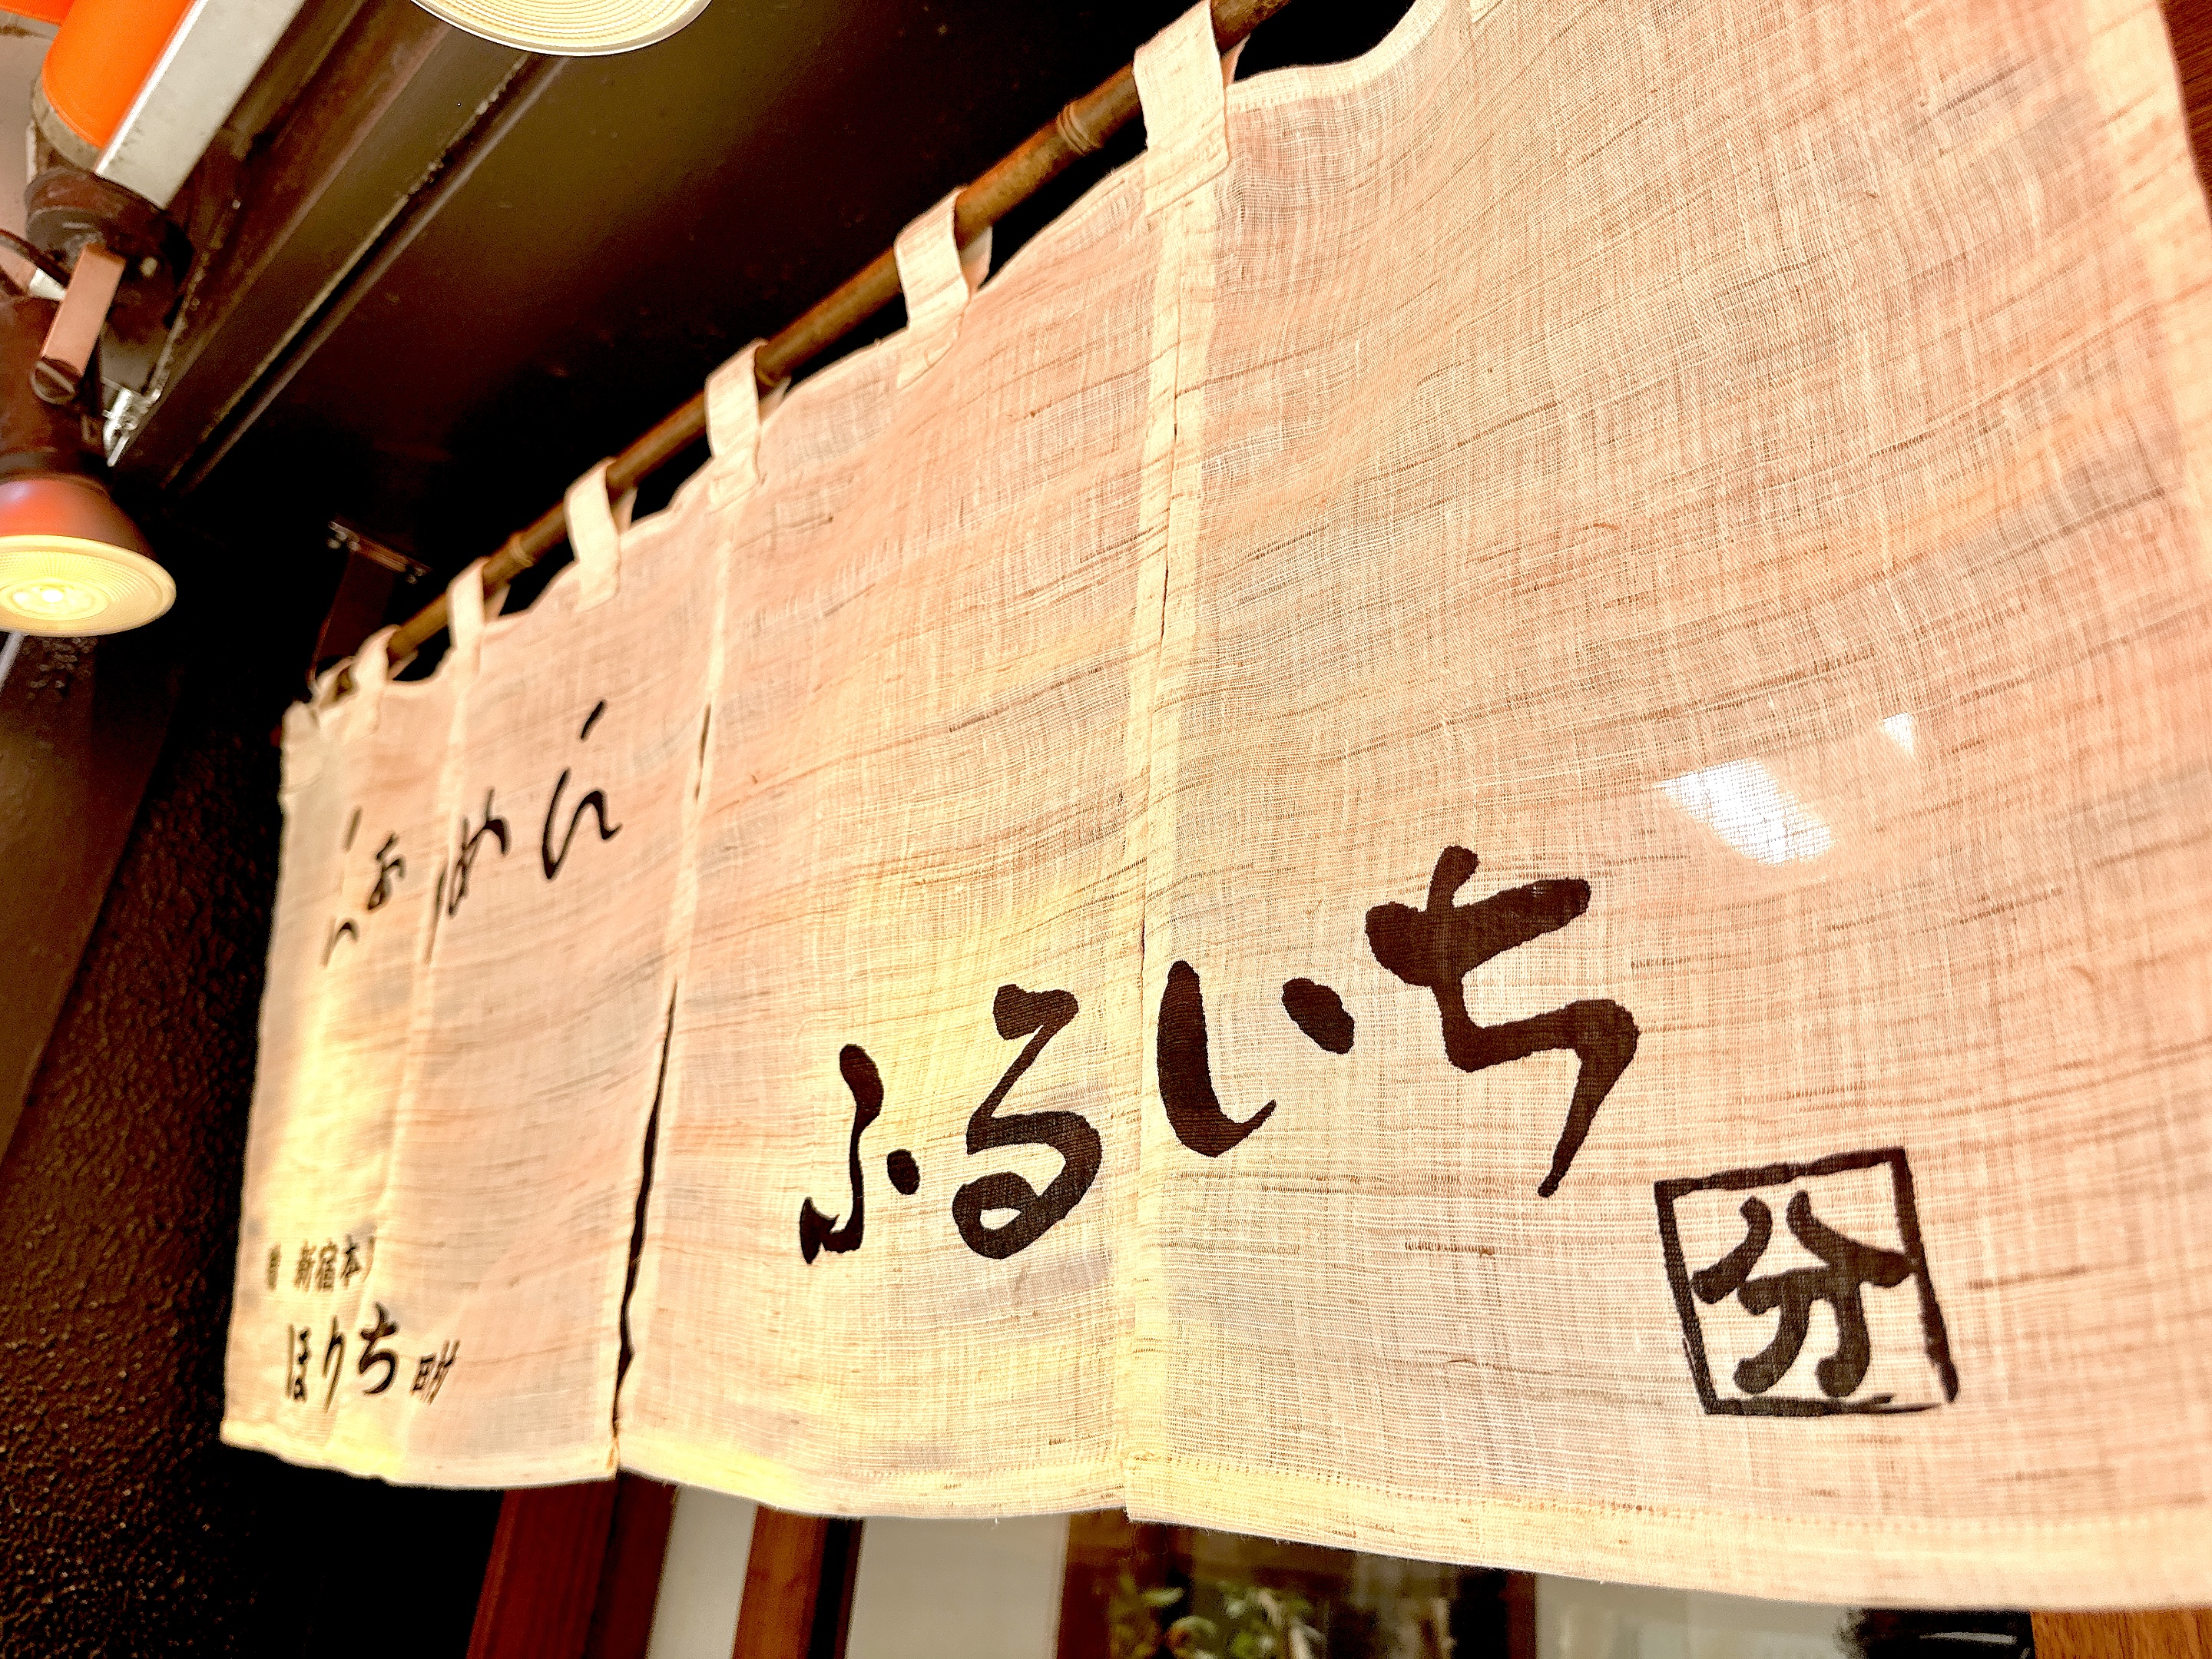 らぁめん
ふるいち
分
新宿本
ほりち